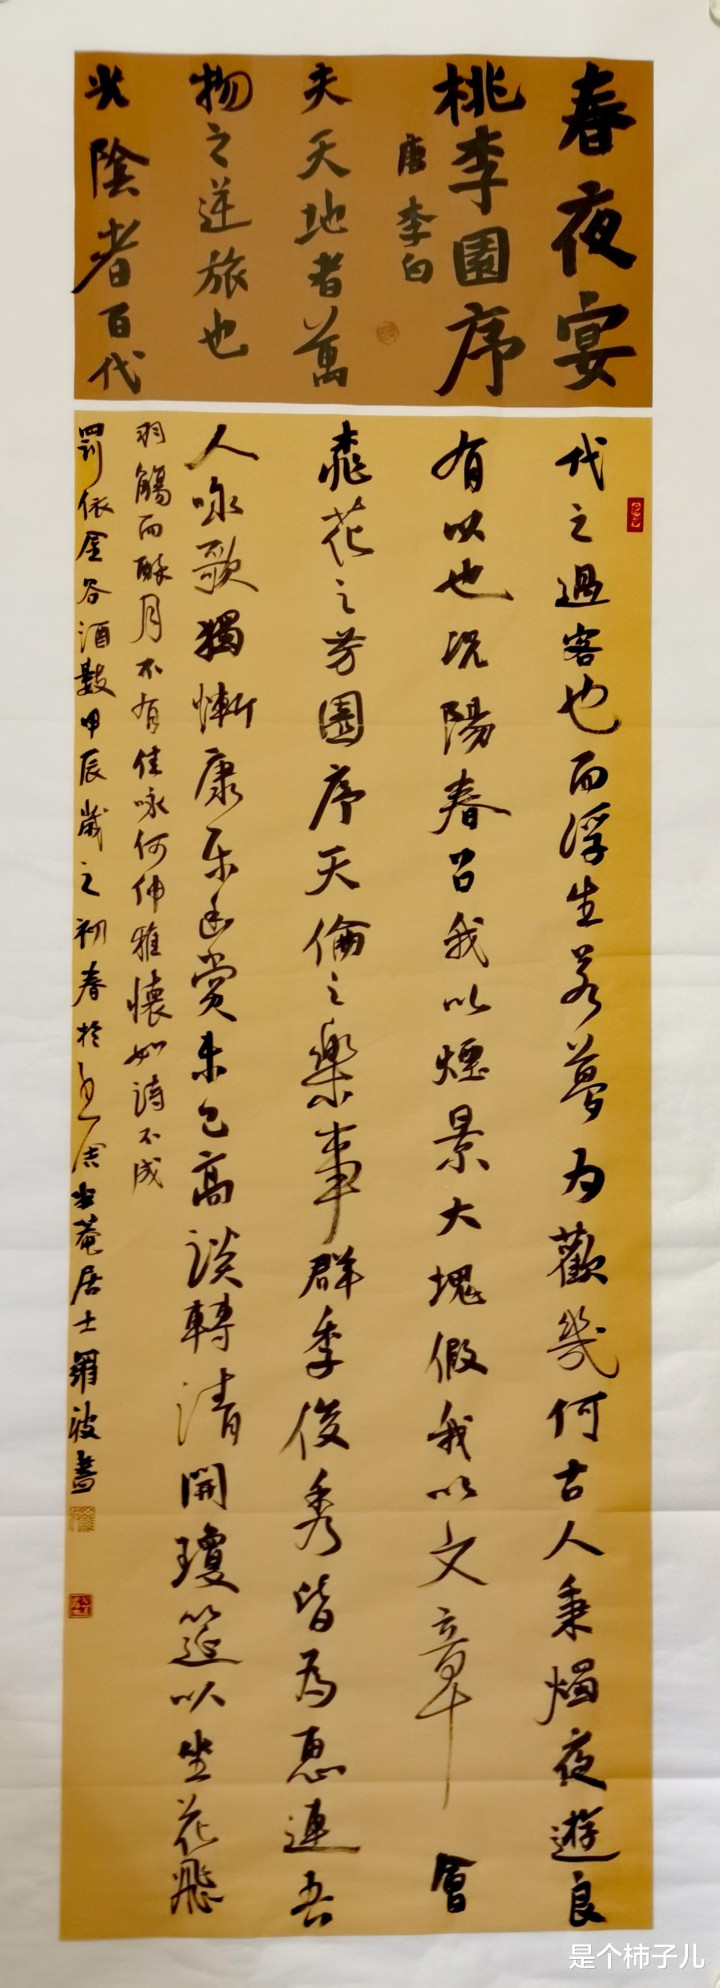 春夜宴
桃李園序
唐李白
夫天地者萬
物之逆旅也
光陰者百代
代之過客也而浮生若夢为歡幾何古人秉燭夜遊良
有以也况陽春召我以煙景大塊假我以文章會
桃花之芳園序天倫之樂事群季俊秀皆為惠連吾
人咏歌獨慚康乐幽赏未已高談轉清開瓊筵以坐花飛
羽觴而醉月不有佳咏何伸雅懷如詩不成
罰依金谷酒數甲辰歲之初春於 菴居士羅波書
是个柿子儿